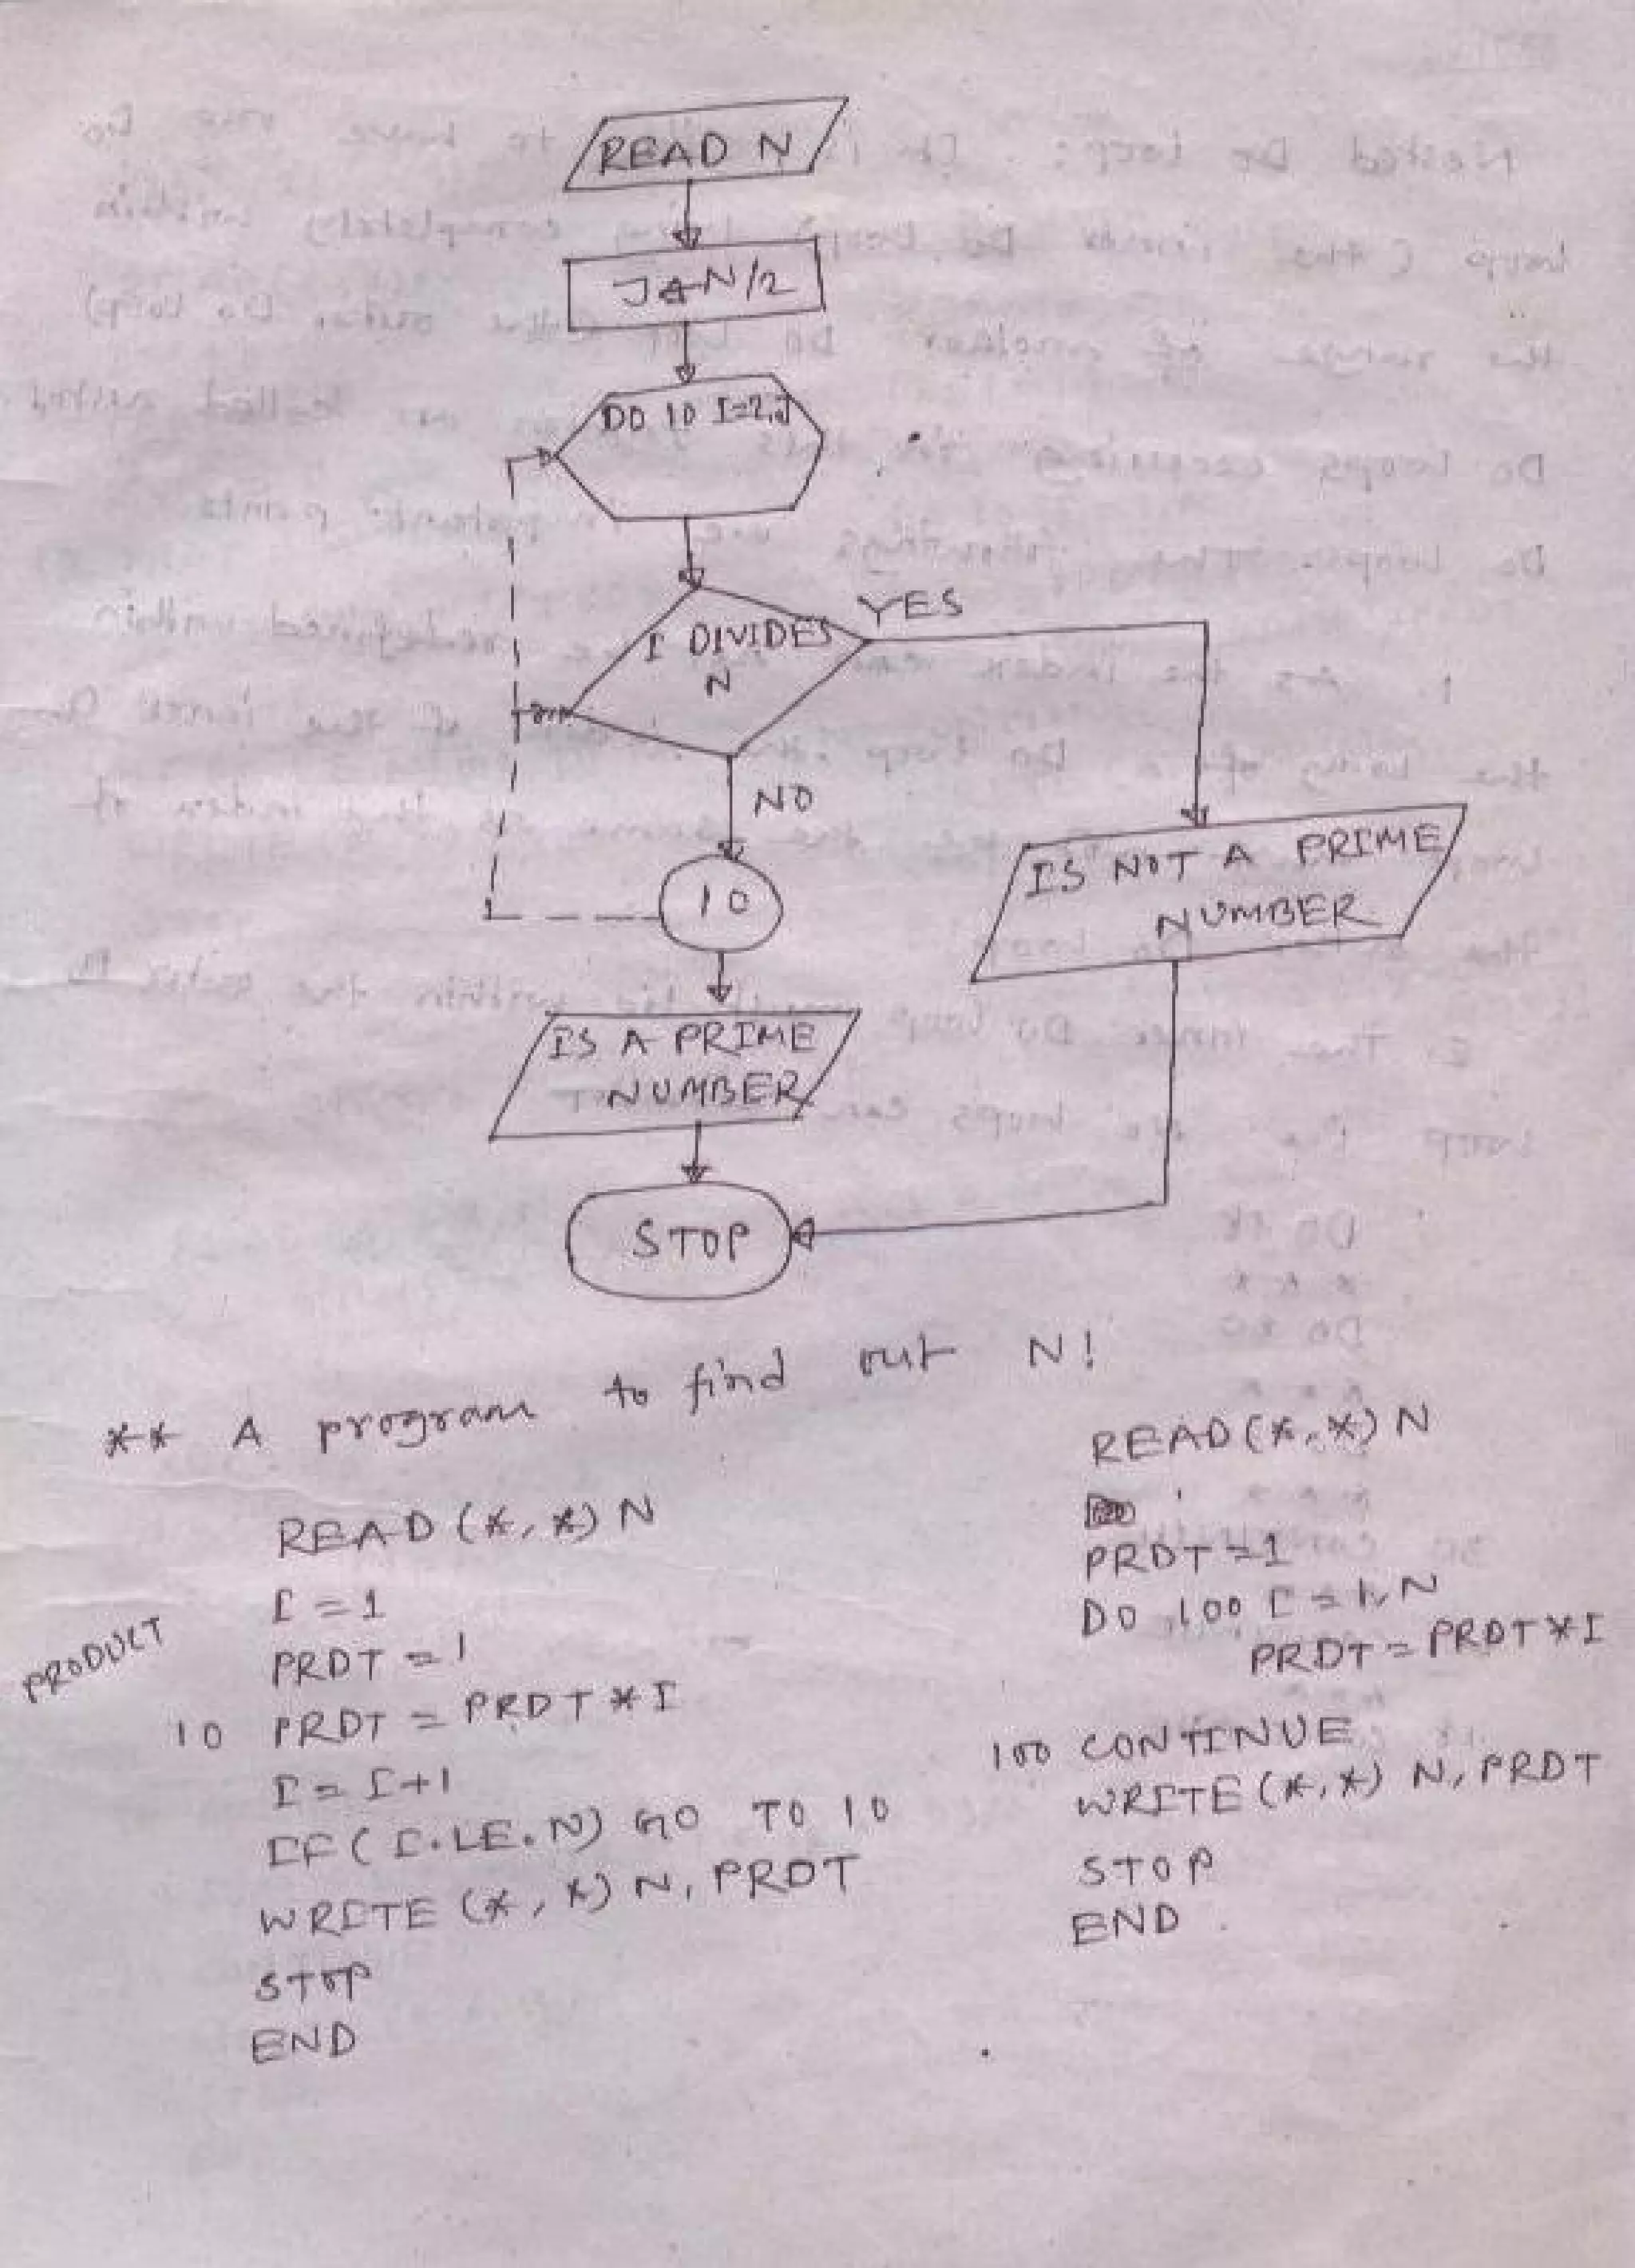 READ N
J←N/2
DO 10 I=2,J
I DIVIDES
N
YES
NO
10
IS NOT A PRIME
NUMBER
IS A PRIME
NUMBER
STOP
** A program to find out N!
READ (*,*) N
I = 1
PRODUCT
PRDT = 1
10 PRDT = PRDT * I
I = I+1
IF ( I.LE.N) GO TO 10
WRITE (*,*) N, PRDT
STOP
END
READ (*,*) N
PRDT = 1
DO 100 I = 1, N
PRDT = PRDT * I
100 CONTINUE
WRITE (*,*) N, PRDT
STOP
END